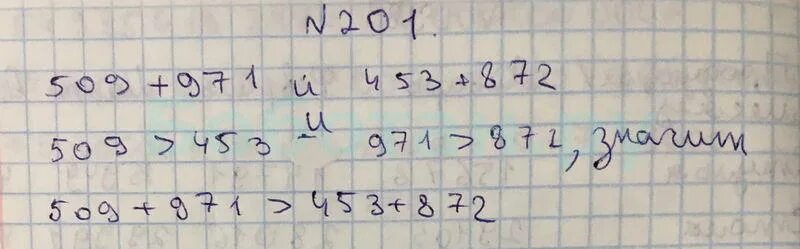 N201.
509 + 971 и 453 + 872
509 > 453 и 971 > 872, значит
509 + 971 > 453 + 872